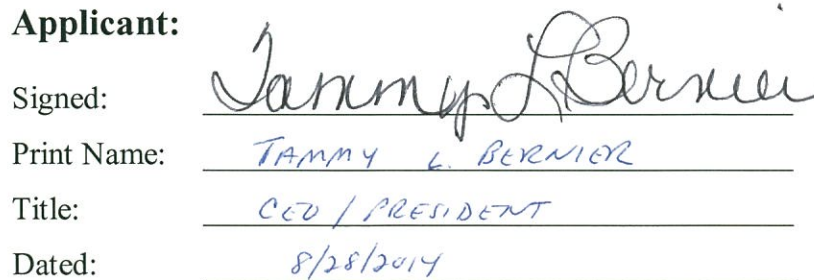 Applicant:
Signed: Tammy L Bernier
Print Name: TAMMY L. BERNIER
Title: CEO / PRESIDENT
Dated: 8/28/2014